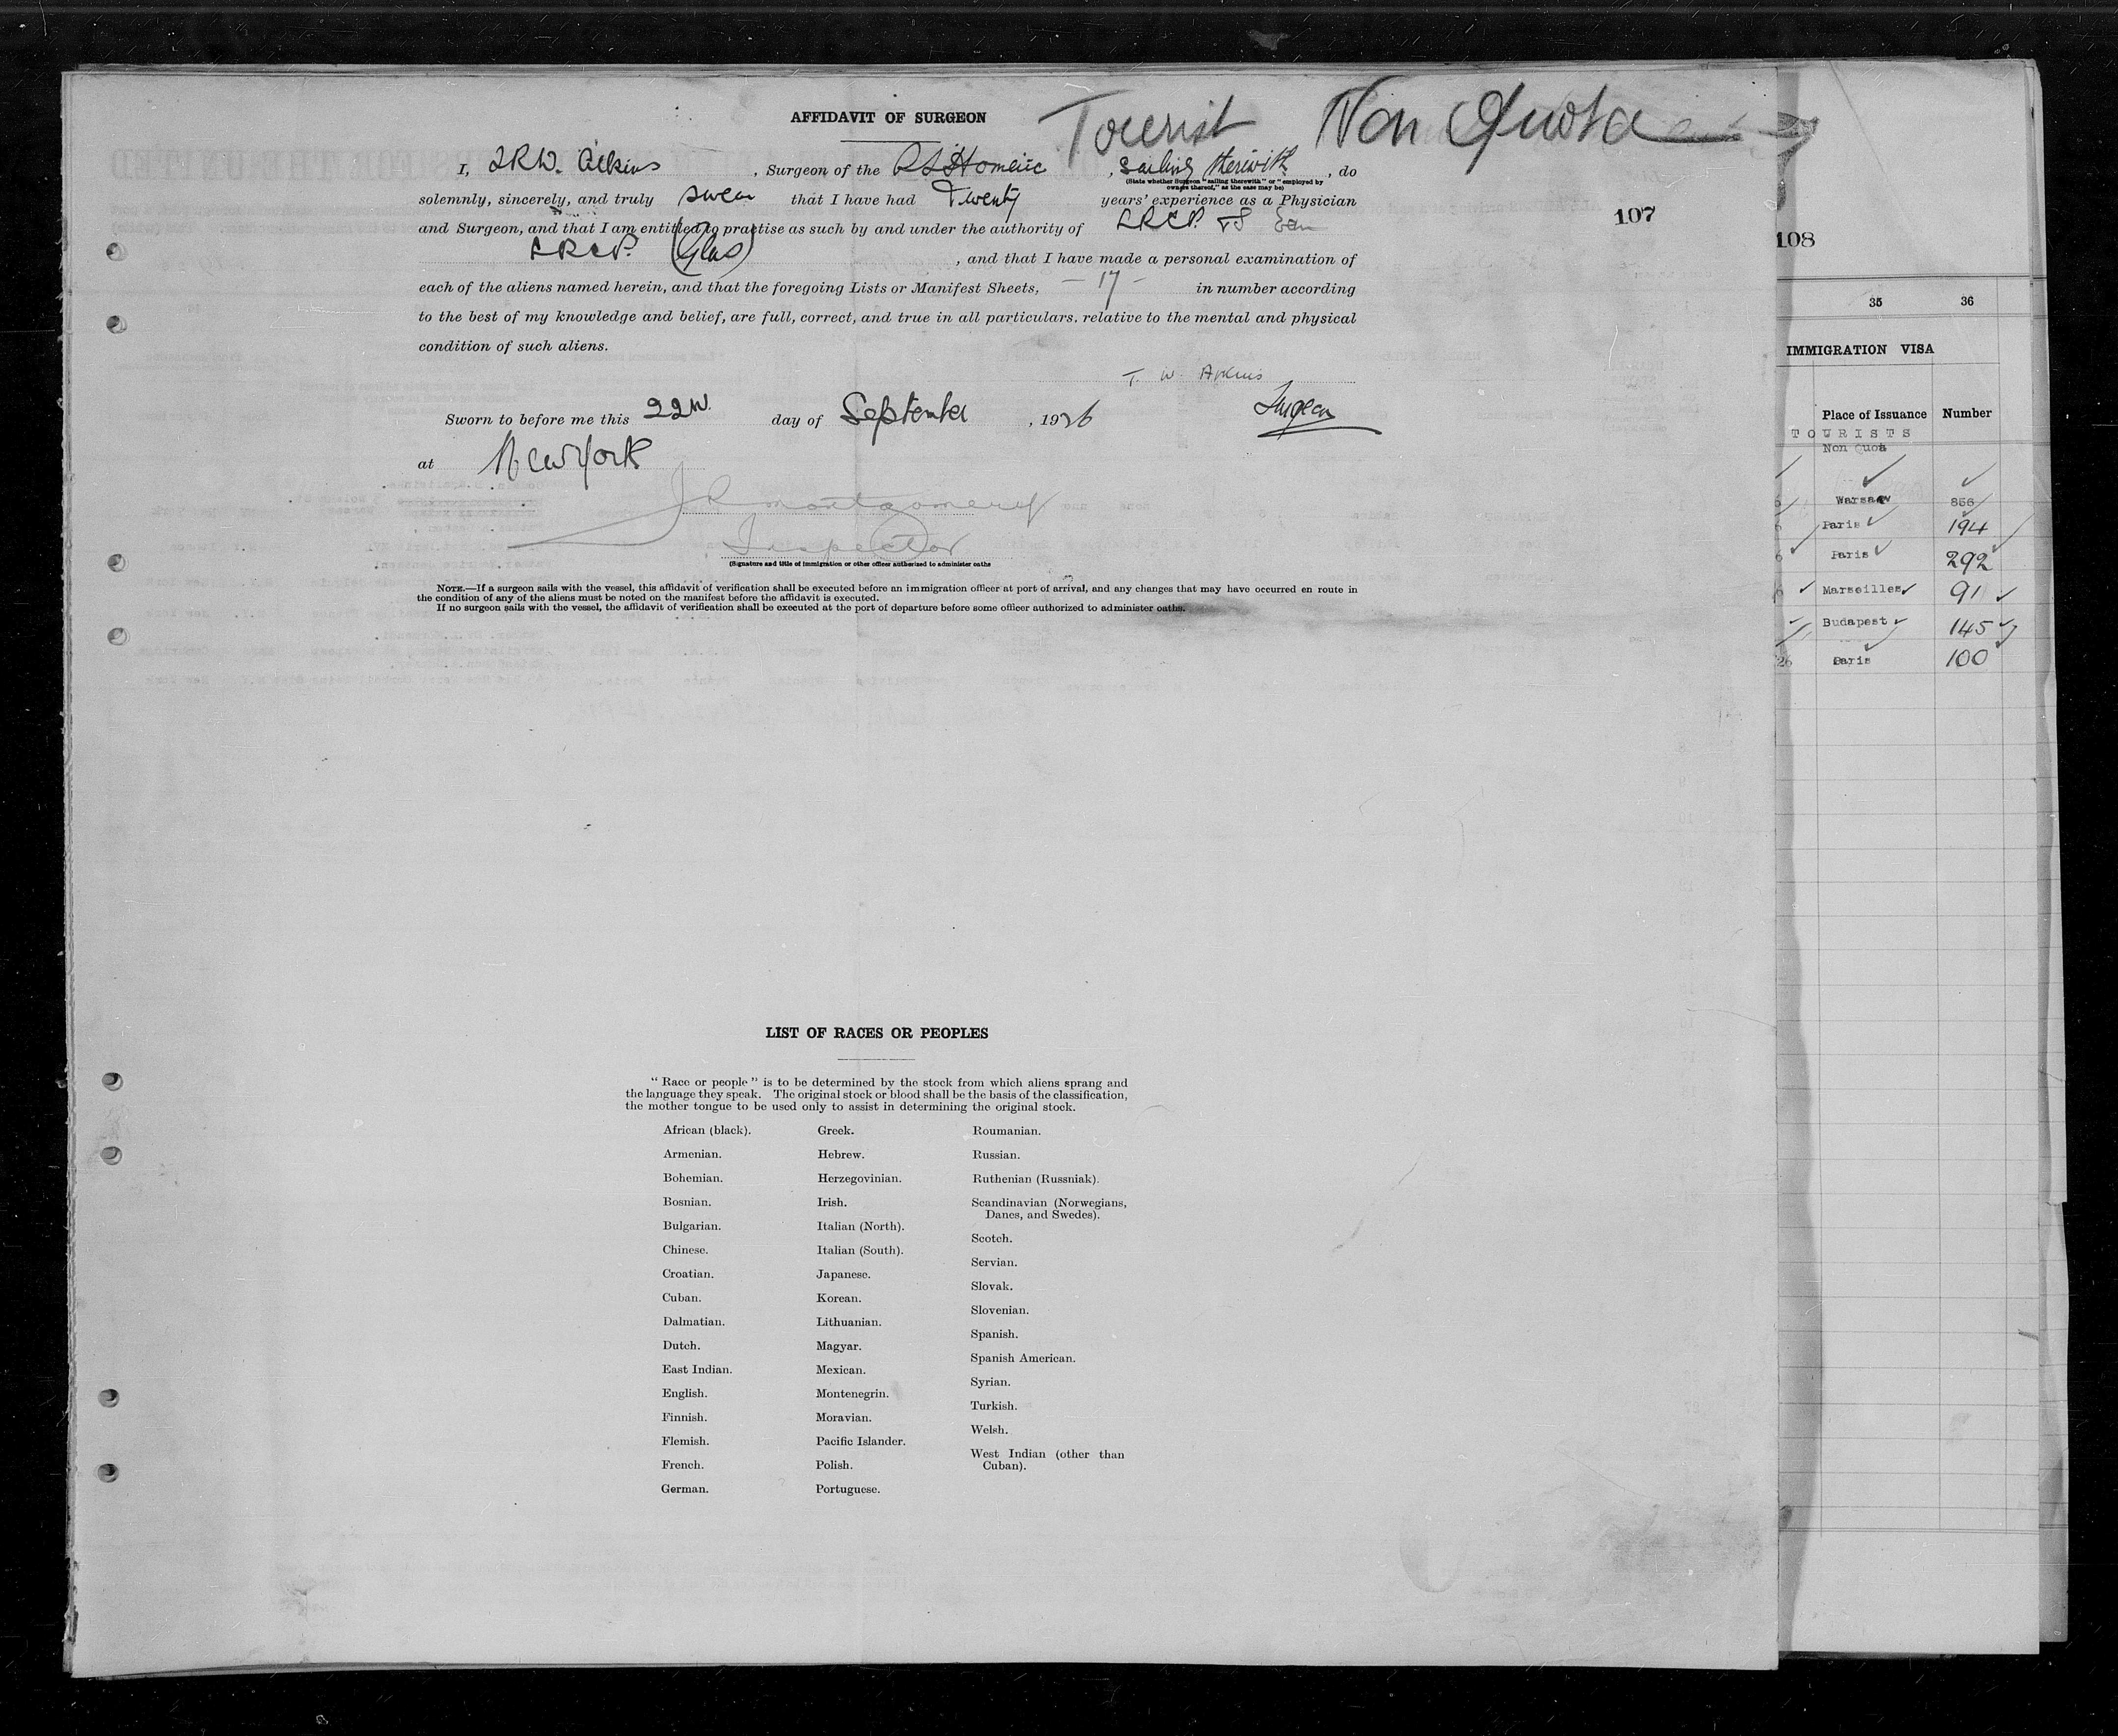 AFFIDAVIT OF SURGEON
Tourist Non Quota
I, Atkins, Surgeon of the RSS Homeric, sailing therewith, do
(State whether Surgeon "sailing therewith" or "employed by
owners thereof," as the case may be)
solemnly, sincerely, and truly swear that I have had Twenty years' experience as a Physician
and Surgeon, and that I am entitled to practise as such by and under the authority of LRCP. & S
LRCP. (Glas), and that I have made a personal examination of
each of the aliens named herein, and that the foregoing Lists or Manifest Sheets, - 17 - in number according
to the best of my knowledge and belief, are full, correct, and true in all particulars, relative to the mental and physical
condition of such aliens.
T. W. Atkins
Surgeon
Sworn to before me this 22nd day of September, 1926
at New York
J R Montgomery
Inspector
(Signature and title of immigration or other officer authorized to administer oaths
NOTE.—If a surgeon sails with the vessel, this affidavit of verification shall be executed before an immigration officer at port of arrival, and any changes that may have occurred en route in
the condition of any of the aliens must be noted on the manifest before the affidavit is executed.
If no surgeon sails with the vessel, the affidavit of verification shall be executed at the port of departure before some officer authorized to administer oaths.
107
LIST OF RACES OR PEOPLES
"Race or people" is to be determined by the stock from which aliens sprang and
the language they speak. The original stock or blood shall be the basis of the classification,
the mother tongue to be used only to assist in determining the original stock.
African (black).
Armenian.
Bohemian.
Bosnian.
Bulgarian.
Chinese.
Croatian.
Cuban.
Dalmatian.
Dutch.
East Indian.
English.
Finnish.
Flemish.
French.
German.
Greek.
Hebrew.
Herzegovinian.
Irish.
Italian (North).
Italian (South).
Japanese.
Korean.
Lithuanian.
Magyar.
Mexican.
Montenegrin.
Moravian.
Pacific Islander.
Polish.
Portuguese.
Roumanian.
Russian.
Ruthenian (Russniak).
Scandinavian (Norwegians,
Danes, and Swedes).
Scotch.
Servian.
Slovak.
Slovenian.
Spanish.
Spanish American.
Syrian.
Turkish.
Welsh.
West Indian (other than
Cuban).
108
35 36
IMMIGRATION VISA
Place of Issuance Number
TOURISTS
Non Quota
Warsaw 856
Paris 194
Paris 292
Marseilles 91
Budapest 145
26 Paris 100